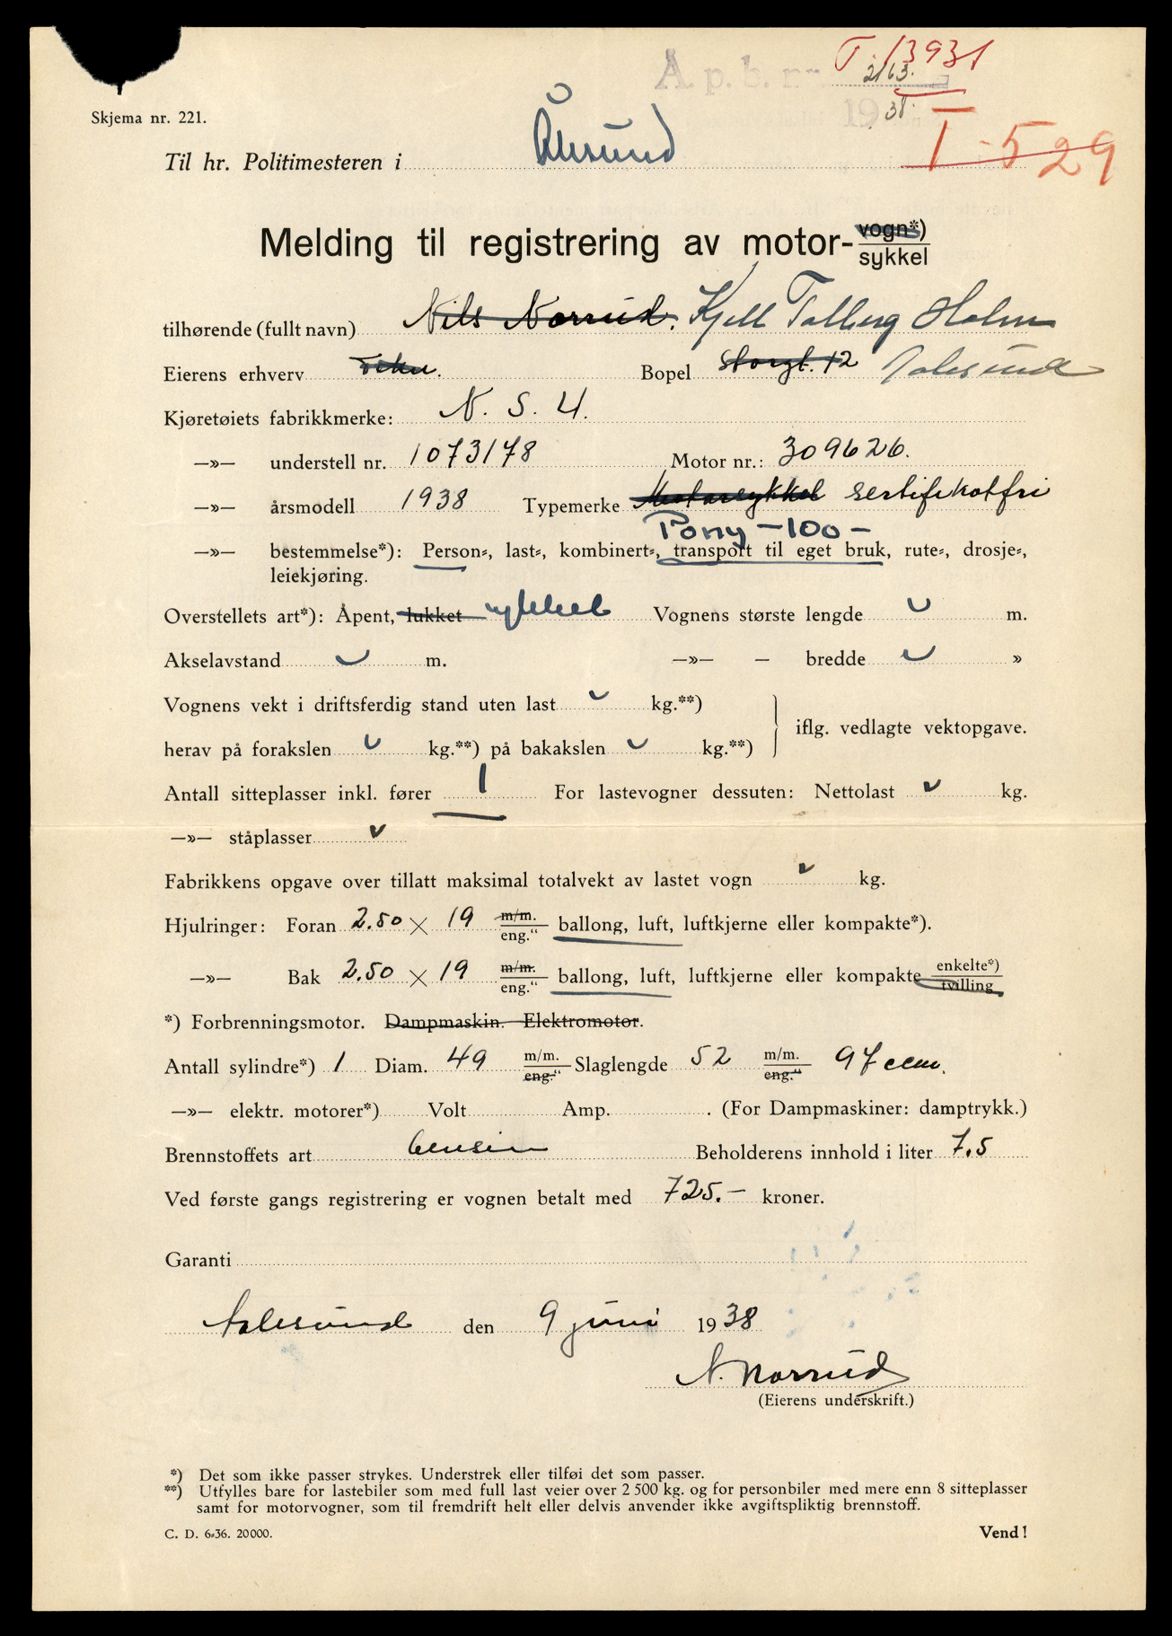 T. 13931
A.p.b. nr. 2163.
1938.
T-529
Skjema nr. 221.
Til hr. Politimesteren i Ålesund
Melding til registrering av motor-vogn*)
sykkel
tilhørende (fullt navn) Nils Norrud. Kjell Tolberg Holm
Eierens erhverv Bopel Storgt. 12 Aalesund
Kjøretøiets fabrikkmerke: N. S. U.
—»— understell nr. 1073178 Motor nr.: 309626.
—»— årsmodell 1938 Typemerke Motorsykkel sertifikatfri
Pony -100-
—»— bestemmelse*): Person-, last-, kombinert-, transport til eget bruk, rute-, drosje-,
leiekjøring.
Overstellets art*): Åpent, lukket sykkel Vognens største lengde m.
Akselavstand m. —»— — bredde »
Vognens vekt i driftsferdig stand uten last kg.**)
iflg. vedlagte vektopgave.
herav på forakslen kg.**) på bakakslen kg.**)
Antall sitteplasser inkl. fører 1 For lastevogner dessuten: Nettolast kg.
—»— ståplasser
Fabrikkens opgave over tillatt maksimal totalvekt av lastet vogn kg.
Hjulringer: Foran 2.50 × 19 m/m. eng." ballong, luft, luftkjerne eller kompakte*).
—»— Bak 2.50 × 19 m/m. eng." ballong, luft, luftkjerne eller kompakte enkelte*) tvilling
*) Forbrenningsmotor. Dampmaskin. Elektromotor.
Antall sylindre*) 1 Diam. 49 m/m. eng." Slaglengde 52 m/m. eng." 97 ccm.
—»— elektr. motorer*) Volt Amp. . (For Dampmaskiner: damptrykk.)
Brennstoffets art bensin Beholderens innhold i liter 7.5
Ved første gangs registrering er vognen betalt med 725.- kroner.
Garanti
Aalesund den 9 juni 1938
N. Norrud
(Eierens underskrift.)
*) Det som ikke passer strykes. Understrek eller tilføi det som passer.
**) Utfylles bare for lastebiler som med full last veier over 2 500 kg. og for personbiler med mere enn 8 sitteplasser
samt for motorvogner, som til fremdrift helt eller delvis anvender ikke avgiftspliktig brennstoff.
C. D. 6-36. 20000.
Vend!